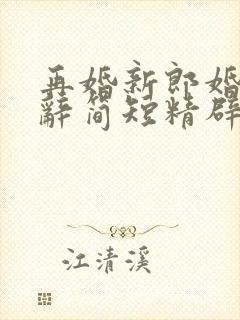 再婚新郎婚
辭简短精辟
江清溪